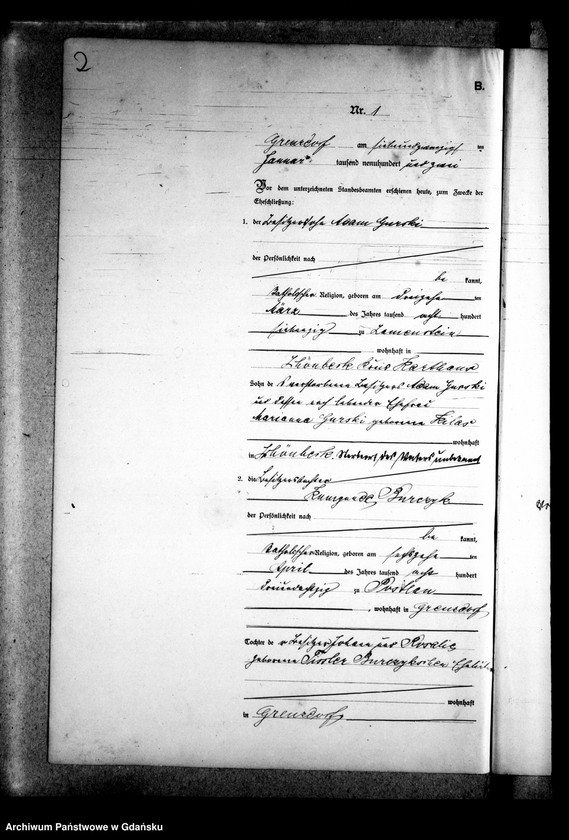 2
B.
Nr. 1
Grenzdorf am siebenundzwanzigsten
Januar tausend neunhundert und zwei
Vor dem unterzeichneten Standesbeamten erschienen heute, zum Zwecke der
Eheschließung:
1. der Besitzersohn Adam Gurski
der Persönlichkeit nach
be kannt,
katholischer Religion, geboren am ten
März des Jahres tausend acht hundert
siebenzig zu
wohnhaft in
Schönbeck Kreis Karthaus
Sohn de s verstorbenen Besitzers Adam Gurski
und dessen noch lebenden Ehefrau
Marianna Gurski geborene
wohnhaft
in Schönbeck.
2. die Besitzerstochter
Kunigunde Burczyk
der Persönlichkeit nach
be kannt,
katholischer Religion, geboren am sechszehn ten
April des Jahres tausend acht hundert
dreiundachtzig zu
, wohnhaft in Grenzdorf
Tochter de r Besitzer Johann und Rosalie
geborene Burczyk Eheleute
wohnhaft
in Grenzdorf
Archiwum Państwowe w Gdańsku